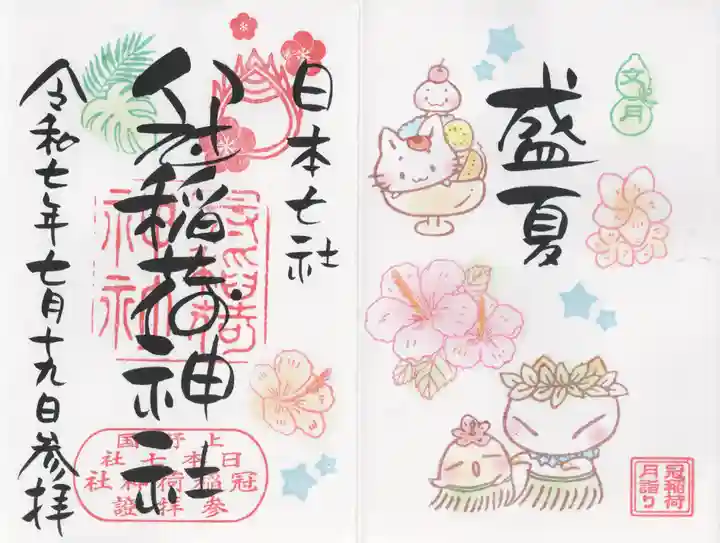 文月
盛夏
冠稲荷
月詣り
日本七社
稲荷神社
令和七年七月十九日参拝
上野国
日本七社
冠稲荷神社
参拝證